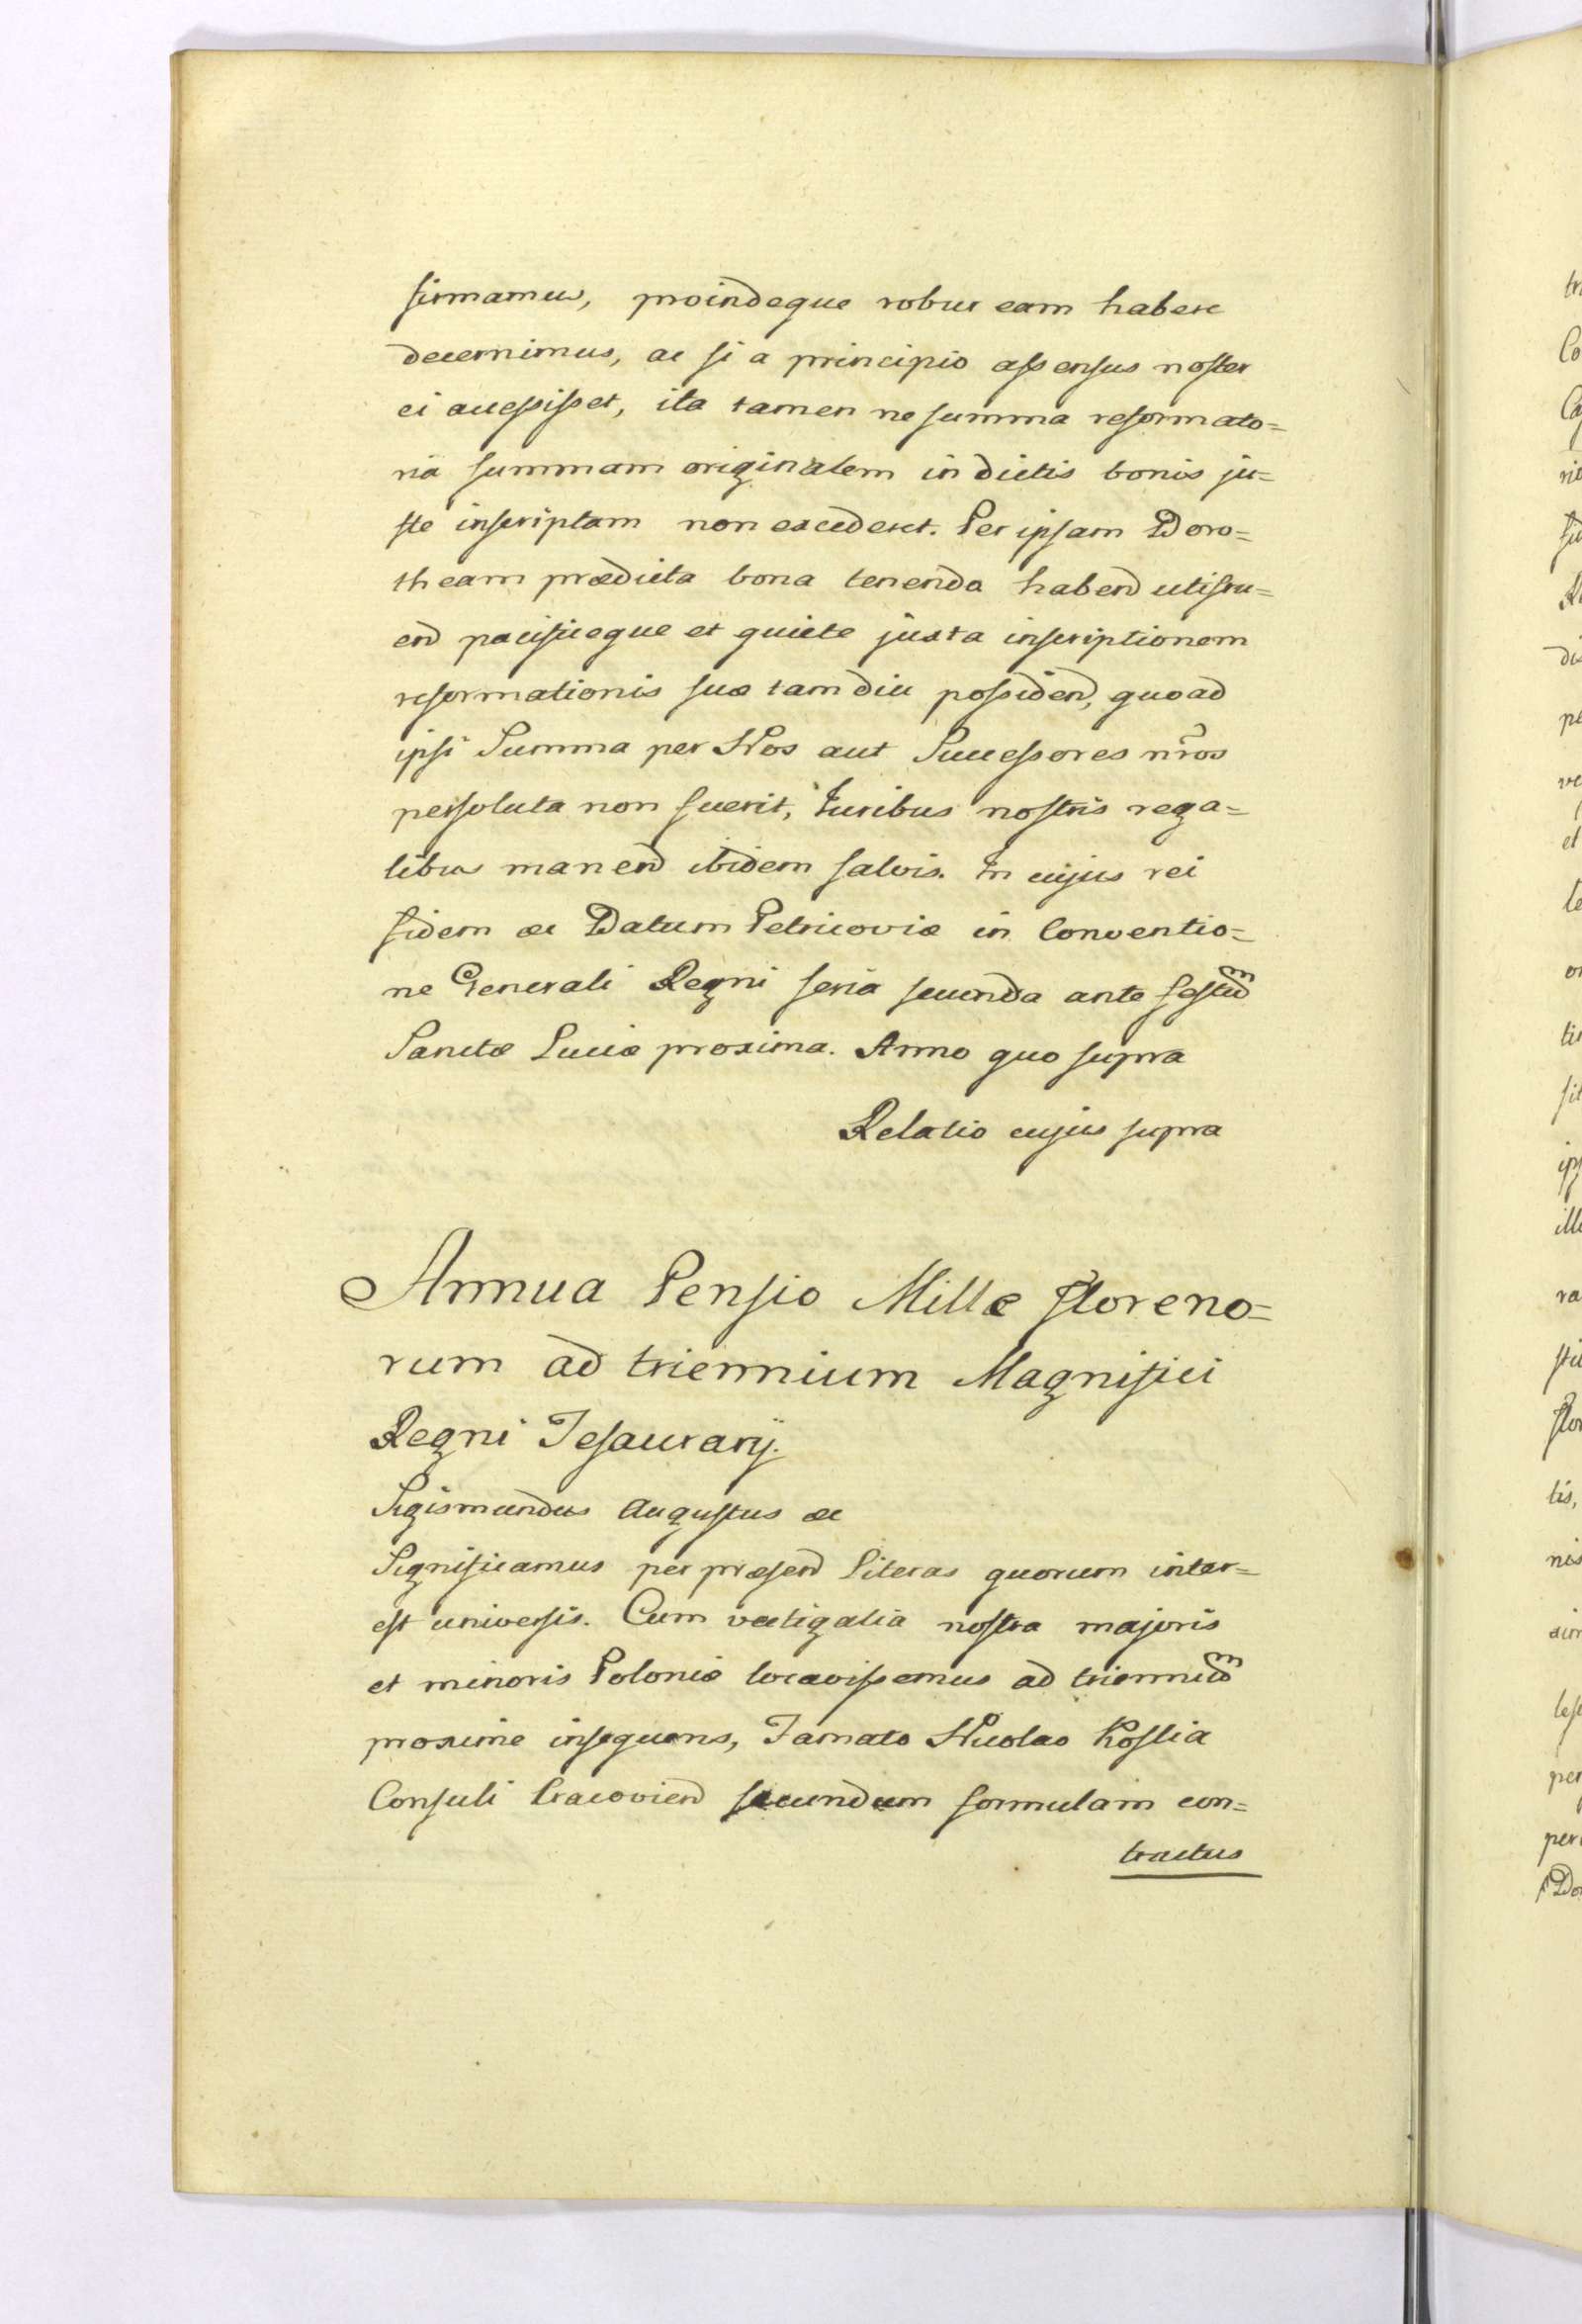 firmamus, proindeque robur eam habere
decernimus, ac si a principio assensus noster
ei accessisset, ita tamen ne summa reformato=
ria summam originalem in dictis bonis ju=
ste inscriptam non excederet. Per ipsam Doro=
theam prædicta bona tenenda habend utifru=
end pacificeque et quiete juxta inscriptionem
reformationis suæ tam diu possidend, quoad
ipsi Summa per Nos aut Successores nr̃os
persoluta non fuerit, Iuribus nostris rega=
libus manend ibidem salvis. In cujus rei
fidem &c Datum Petricoviæ in Conventio=
ne Generali Regni feria secunda ante festũ
Sanctæ Luciæ proxima. Anno quo supra
Relatio cujus supra
Annua Pensio Mille floreno=
rum ad triennium Magnifici
Regni Tesaurarij.
Sigismundus Augustus &c
Significamus per præsend Literas quorum inter=
est universis. Cum vectigalia nostra majoris
et minoris Poloniæ locavissemus ad trienniũ
proxime insequens, Famato Nicolao Kostia
Consuli Cracoviend secundum formulam con=
tractus